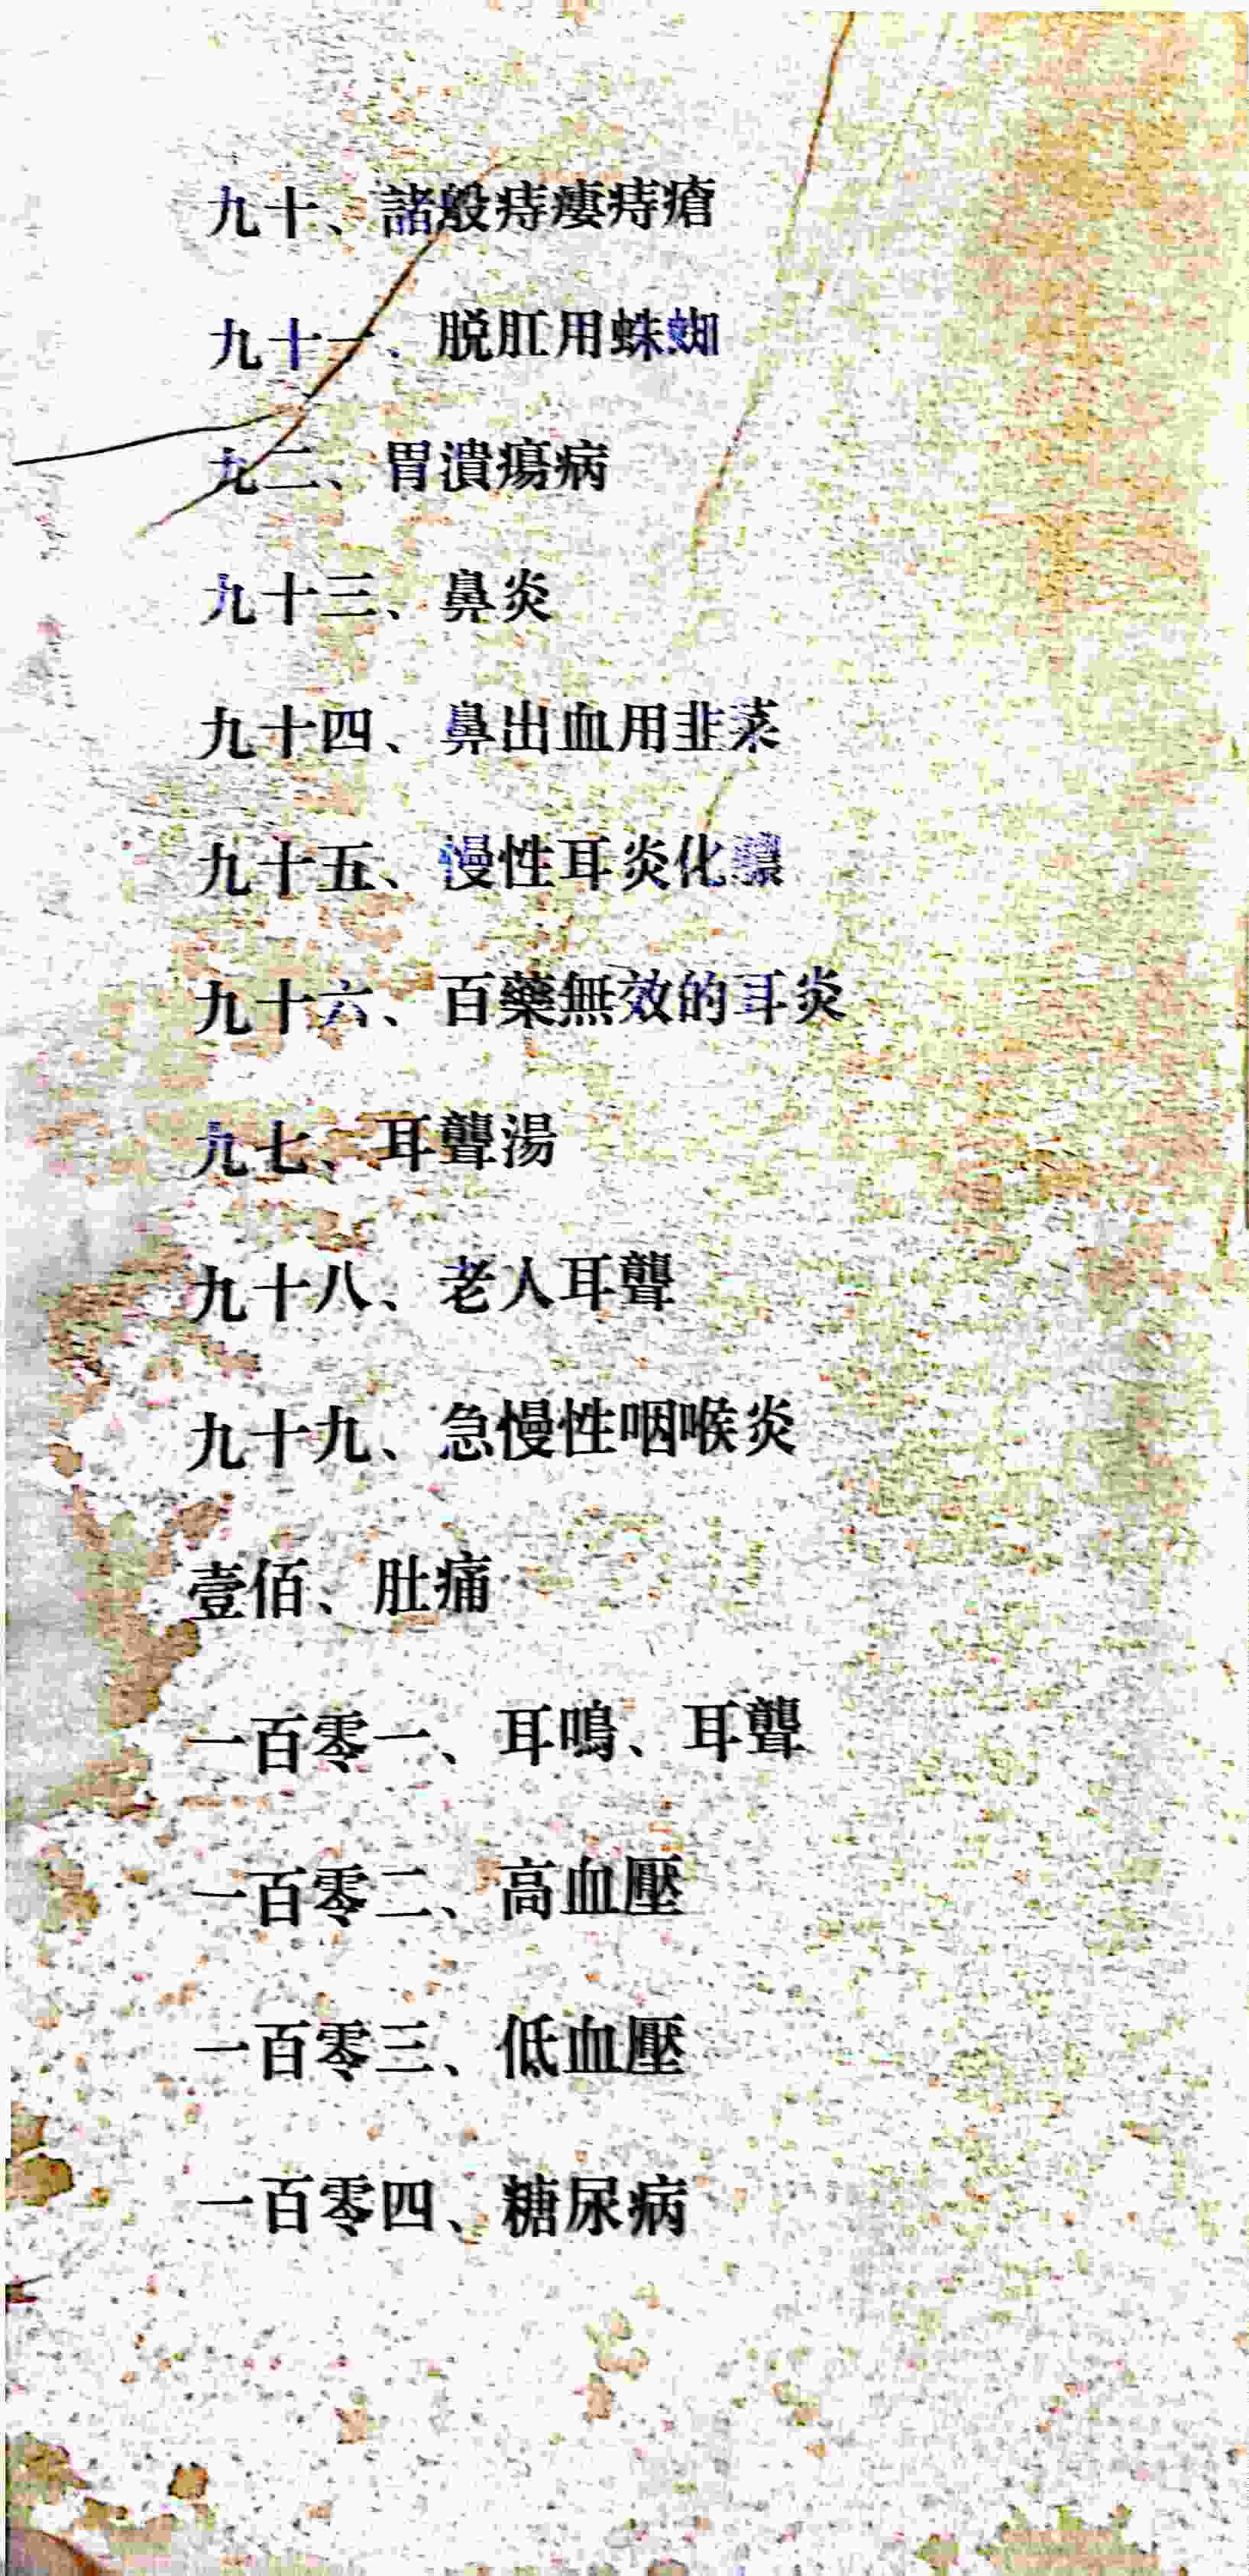 九十、諸般痔瘻痔瘡
九十一、脱肛用蛛蜘
九二、胃潰瘍病
九十三、鼻炎
九十四、鼻出血用韭菜
九十五、慢性耳炎化膿
九十六、百藥無效的耳炎
九七、耳聾湯
九十八、老人耳聾
九十九、急慢性咽喉炎
壹佰、肚痛
一百零一、耳鳴、耳聾
一百零二、高血壓
一百零三、低血壓
一百零四、糖尿病